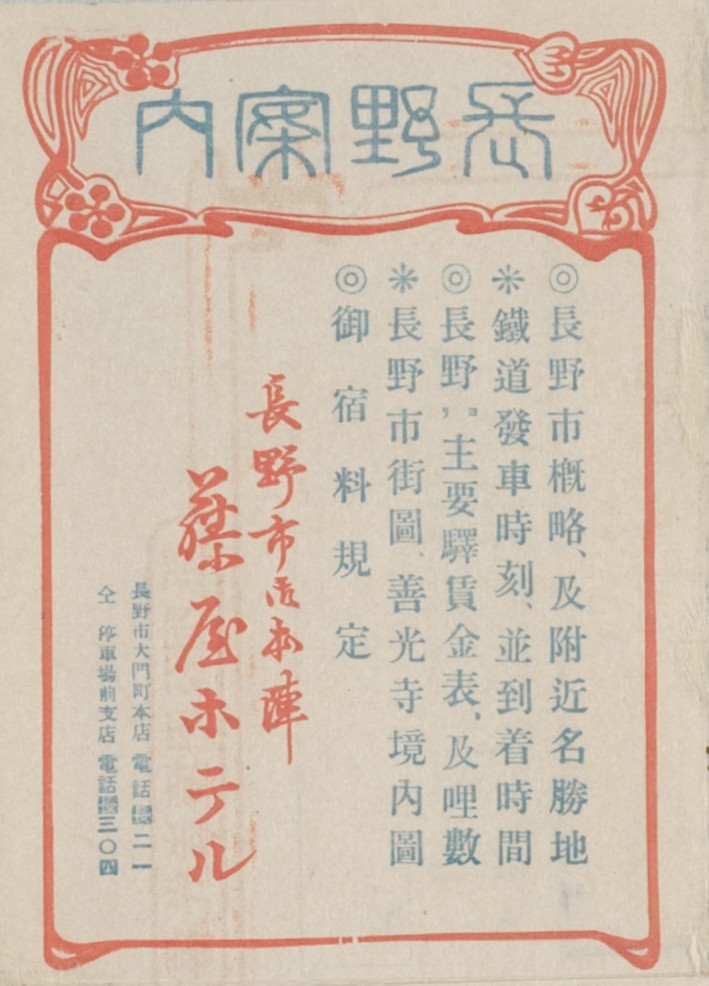 長野案内
◎長野市概略、及附近名勝地
＊鐵道發車時刻、並到着時間
◎長野ヨリ主要驛賃金表、及哩數
＊長野市街圖、善光寺境內圖
◎御宿料規定
長野市御本陣
藤屋ホテル
長野市大門町本店 電話長二一
仝 停車場前支店 電話長三〇四